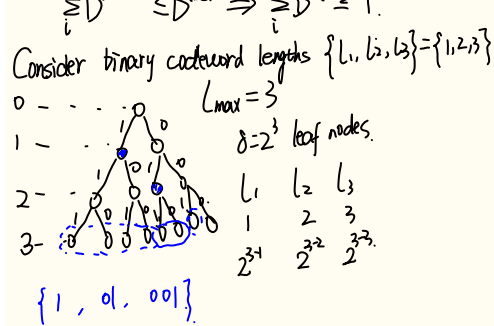 ∑_i D ≤ D ⇒ ∑_i D ≤ 1.
Consider binary codeword lengths {l₁, l₂, l₃}={1,2,3}
0 - - - 1 0 L_max = 3
1 - - - 8=2³ leaf nodes.
1 0 1 0
2 - - l₁ l₂ l₃
1 0 1 0 1 0 1 0 1 2 3
3- 2^{3-1} 2^{3-2} 2^{3-3}
{1, 01, 001}